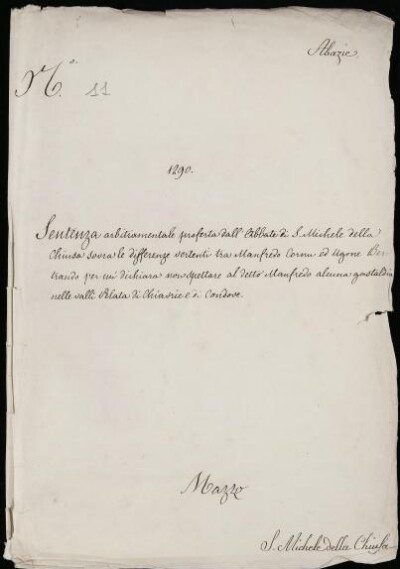 Abazie.
N.° 11
1290.
Sentenza arbitramentale proferta dall'Abbate di S. Michele della
Chiusa sovra le differenze vertenti tra Manfredo Cornu ed Ugone Ber-
trando per cui dichiara non spettare al detto Manfredo alcuna gastaldia
nelle valli di Chiavrie e di Condove.
Mazzo
S. Michele della Chiusa